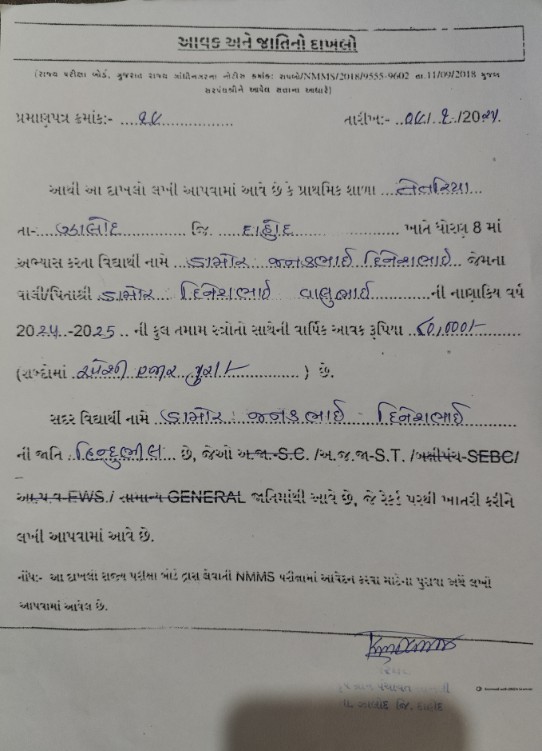 આવક અને જાતિનો દાખલો
(રાજ્ય પરીક્ષા બોર્ડ, ગુજરાત રાજ્ય ગાંધીનગરના નોટીસ ક્રમાંક: રાપબો/NMMS/2018/9555-9602 તા.11/09/2018 મુજબ
સરપંચશ્રીને આપેલ સત્તાના આધારે)
પ્રમાણપત્ર ક્રમાંક:- તારીખ:-
આથી આ દાખલો લખી આપવામાં આવે છે કે પ્રાથમિક શાળા
તા- ઝાલોદ જિ. દાહોદ ખાતે ધોરણ 8 માં
અભ્યાસ કરતા વિદ્યાર્થી નામે ડામોર જનકભાઈ દિનેશભાઈ જેમના
વાલી/પિતાશ્રી ડામોર દિનેશભાઈ વાલુભાઈ ની નાણાકિય વર્ષ
2024-2025 ની કુલ તમામ સ્ત્રોતો સાથેની વાર્ષિક આવક રૂપિયા
(શબ્દોમાં હજાર પુરા/- ) છે.
સદર વિદ્યાર્થી નામે ડામોર : જનકભાઈ દિનેશભાઈ
ની જાતિ હિન્દુભીલ છે, જેઓ અ.જા.-S.C. /અ.જ.જા-S.T. /બક્ષીપંચ-SEBC/
આ.પ.વ-EWS./ સામાન્ય GENERAL જાતિમાંથી આવે છે, જે રેકર્ડ પરથી ખાતરી કરીને
લખી આપવામાં આવે છે.
નોંધ:- આ દાખલો રાજ્ય પરીક્ષા બોર્ડ દ્વારા લેવાની NMMS પરીક્ષામાં આવેદન કરવા માટેના પુરાવા અર્થે લખી
આપવામાં આવેલ છે.